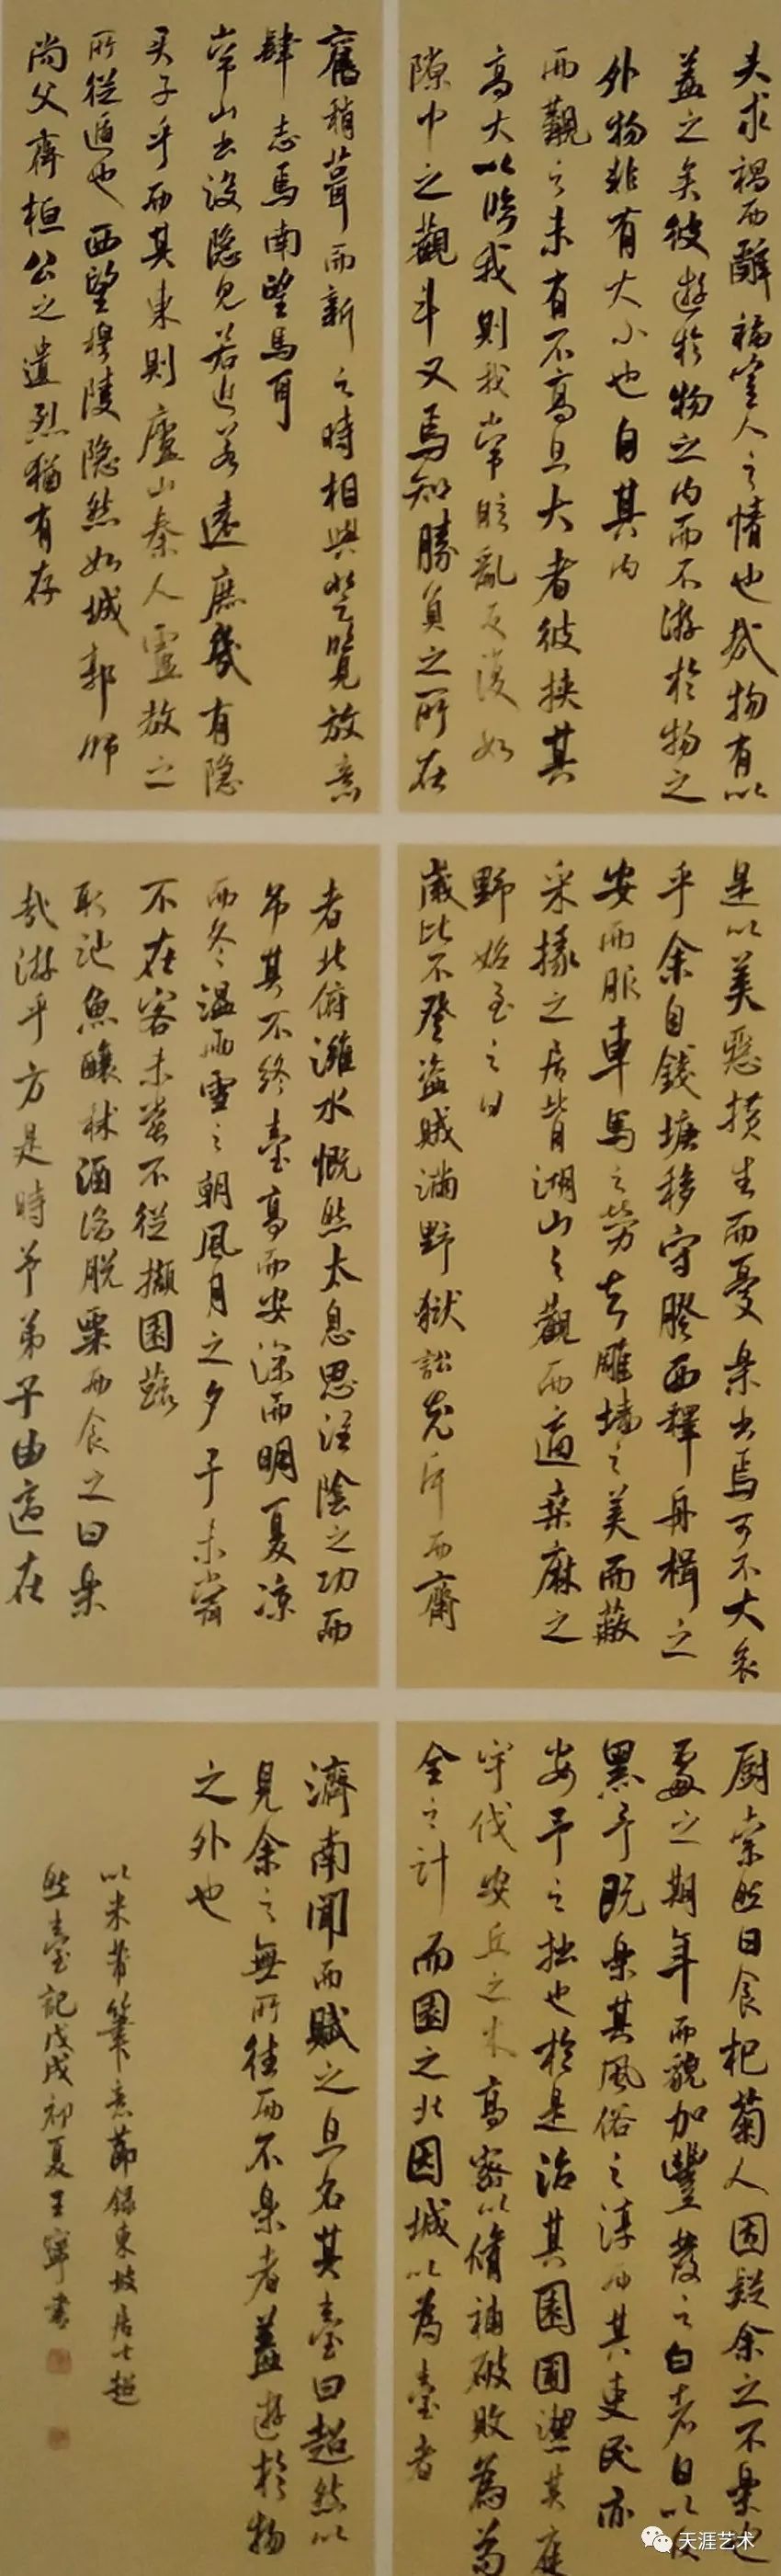 夫求禍而辭福豈人之情也哉物有以
蓋之矣彼遊於物之内而不游於物之
外物非有大小也自其内
而觀之未有不高且大者彼挾其
高大以臨我則我常眩亂反復如
隙中之觀斗又焉知勝負之所在
是以美惡橫生而憂樂出焉可不大哀
乎余自錢塘移守膠西釋舟楫之
安而服車馬之勞去雕墻之美而蔽
采椽之居背湖山之觀而適桑麻之
野始至之日
歲比不登盜賊滿野獄訟充斥而齋
厨索然日食杞菊人固疑余之不樂也
處之期年而貌加豐髮之白者日以反
黑予既樂其風俗之淳而其吏民亦
安予之拙也於是治其園圃潔其庭
宇伐安丘之木高密以脩補破敗為苟
全之計而園之北因城以為臺者
舊稍葺而新之時相與登覽放意
肆志焉南望馬耳
常山出没隐見若近若遠庶幾有隐
君子乎而其東則廬山秦人盧敖之
所從遁也西望穆陵隐然如城郭師
尚父齊桓公之遺烈猶有存
者北俯濰水慨然太息思淮陰之功而
吊其不終臺高而安深而明夏凉
而冬温雨雪之朝風月之夕予未嘗
不在客未嘗不從擷園蔬
取池魚釀秫酒瀹脱粟而食之曰樂
哉游乎方是時予弟子由適在
濟南聞而賦之且名其臺曰超然以
見余之無所往而不樂者蓋遊於物
之外也
以米芾筆意節録東坡居士超
然臺記戊戌初夏王寧書
天涯艺术